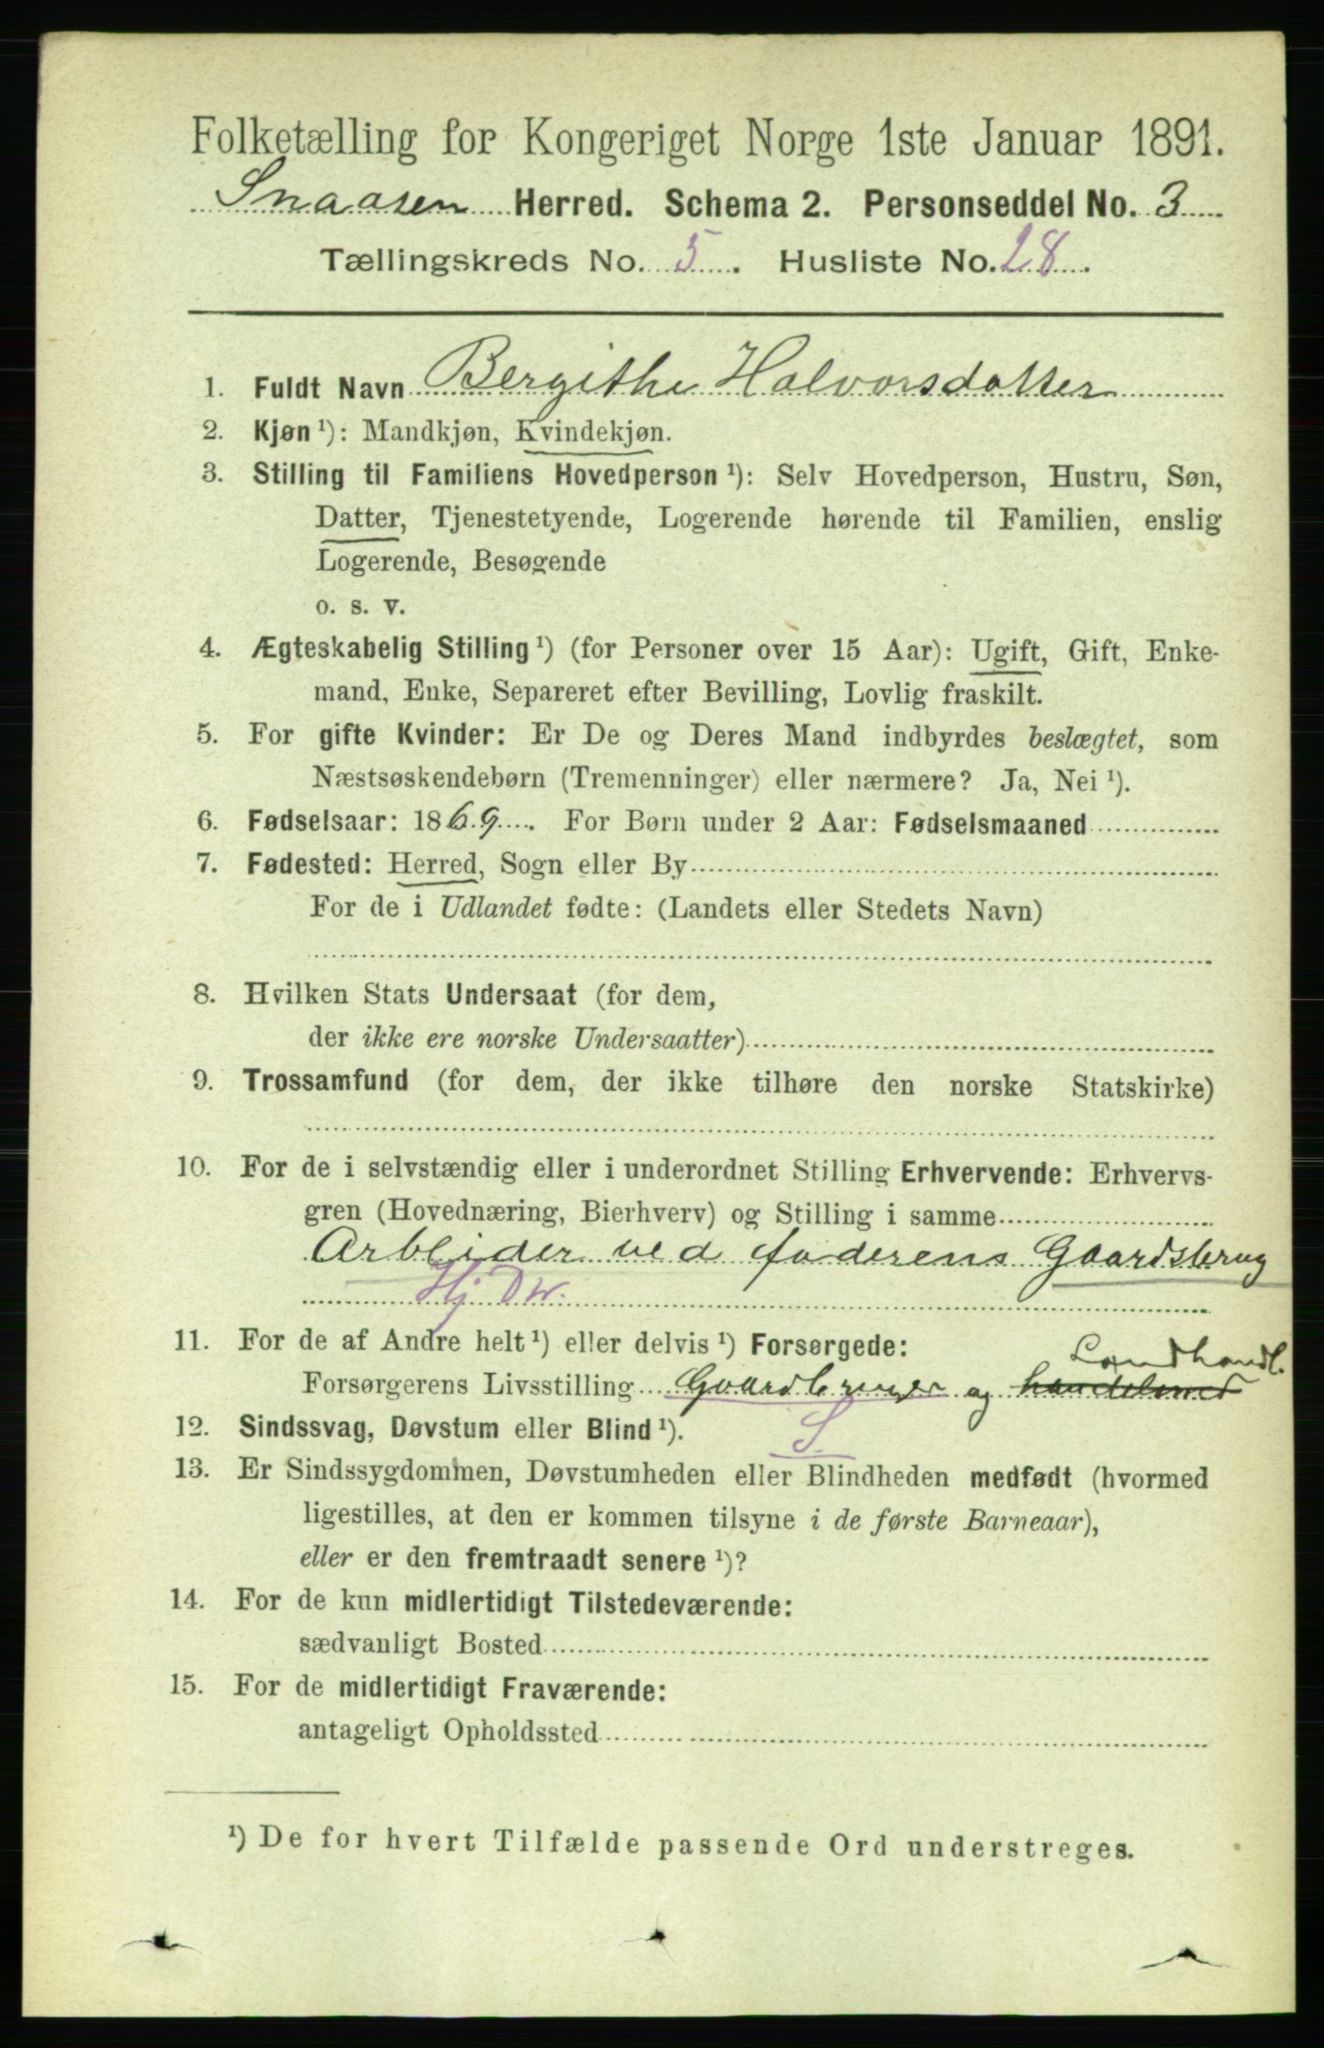 Folketælling for Kongeriget Norge 1ste Januar 1891.
Snaasen Herred. Schema 2. Personseddel No. 3
Tællingskreds No. 5. Husliste No. 28.
1. Fuldt Navn Bergithe Halvorsdatter
2. Kjøn ¹): Mandkjøn, Kvindekjøn.
3. Stilling til Familiens Hovedperson ¹): Selv Hovedperson, Hustru, Søn,
Datter, Tjenestetyende, Logerende hørende til Familien, enslig
Logerende, Besøgende
o. s. v.
4. Ægteskabelig Stilling ¹) (for Personer over 15 Aar): Ugift, Gift, Enke-
mand, Enke, Separeret efter Bevilling, Lovlig fraskilt.
5. For gifte Kvinder: Er De og Deres Mand indbyrdes beslægtet, som
Næstsøskendebørn (Tremenninger) eller nærmere? Ja, Nei ¹).
6. Fødselsaar: 1869. For Børn under 2 Aar: Fødselsmaaned
7. Fødested: Herred, Sogn eller By
For de i Udlandet fødte: (Landets eller Stedets Navn)
8. Hvilken Stats Undersaat (for dem,
der ikke ere norske Undersaatter)
9. Trossamfund (for dem, der ikke tilhøre den norske Statskirke)
10. For de i selvstændig eller i underordnet Stilling Erhvervende: Erhvervs-
gren (Hovednæring, Bierhverv) og Stilling i samme
Arbeider ved faderens Gaardsbrug
Hj Dw.
11. For de af Andre helt ¹) eller delvis ¹) Forsørgede:
Landhandl.
Forsørgerens Livsstilling Gaardbruger og
12. Sindssvag, Døvstum eller Blind ¹). S
13. Er Sindssygdommen, Døvstumheden eller Blindheden medfødt (hvormed
ligestilles, at den er kommen tilsyne i de første Barneaar),
eller er den fremtraadt senere ¹)?
14. For de kun midlertidigt Tilstedeværende:
sædvanligt Bosted
15. For de midlertidigt Fraværende:
antageligt Opholdssted
¹) De for hvert Tilfælde passende Ord understreges.